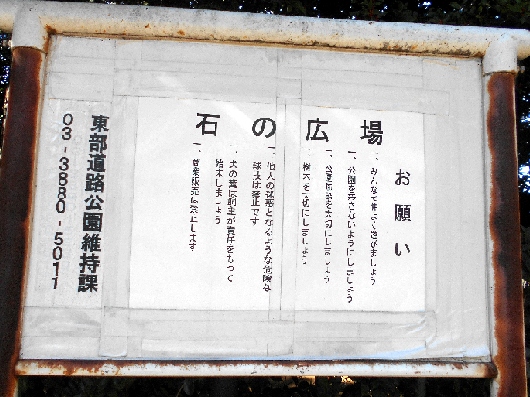 石の広場
お願い
一、みんなで仲よく遊びましょう
一、公園を汚さないようにしましょう
一、公園施設を大切にしましょう
樹木を大切にしましょう
一、他人の迷惑となるような危険な
球技は禁止です
一、犬の糞は飼主が責任をもって
始末しましょう
一、営業販売は禁止します
東部道路公園維持課
03-3880-5011